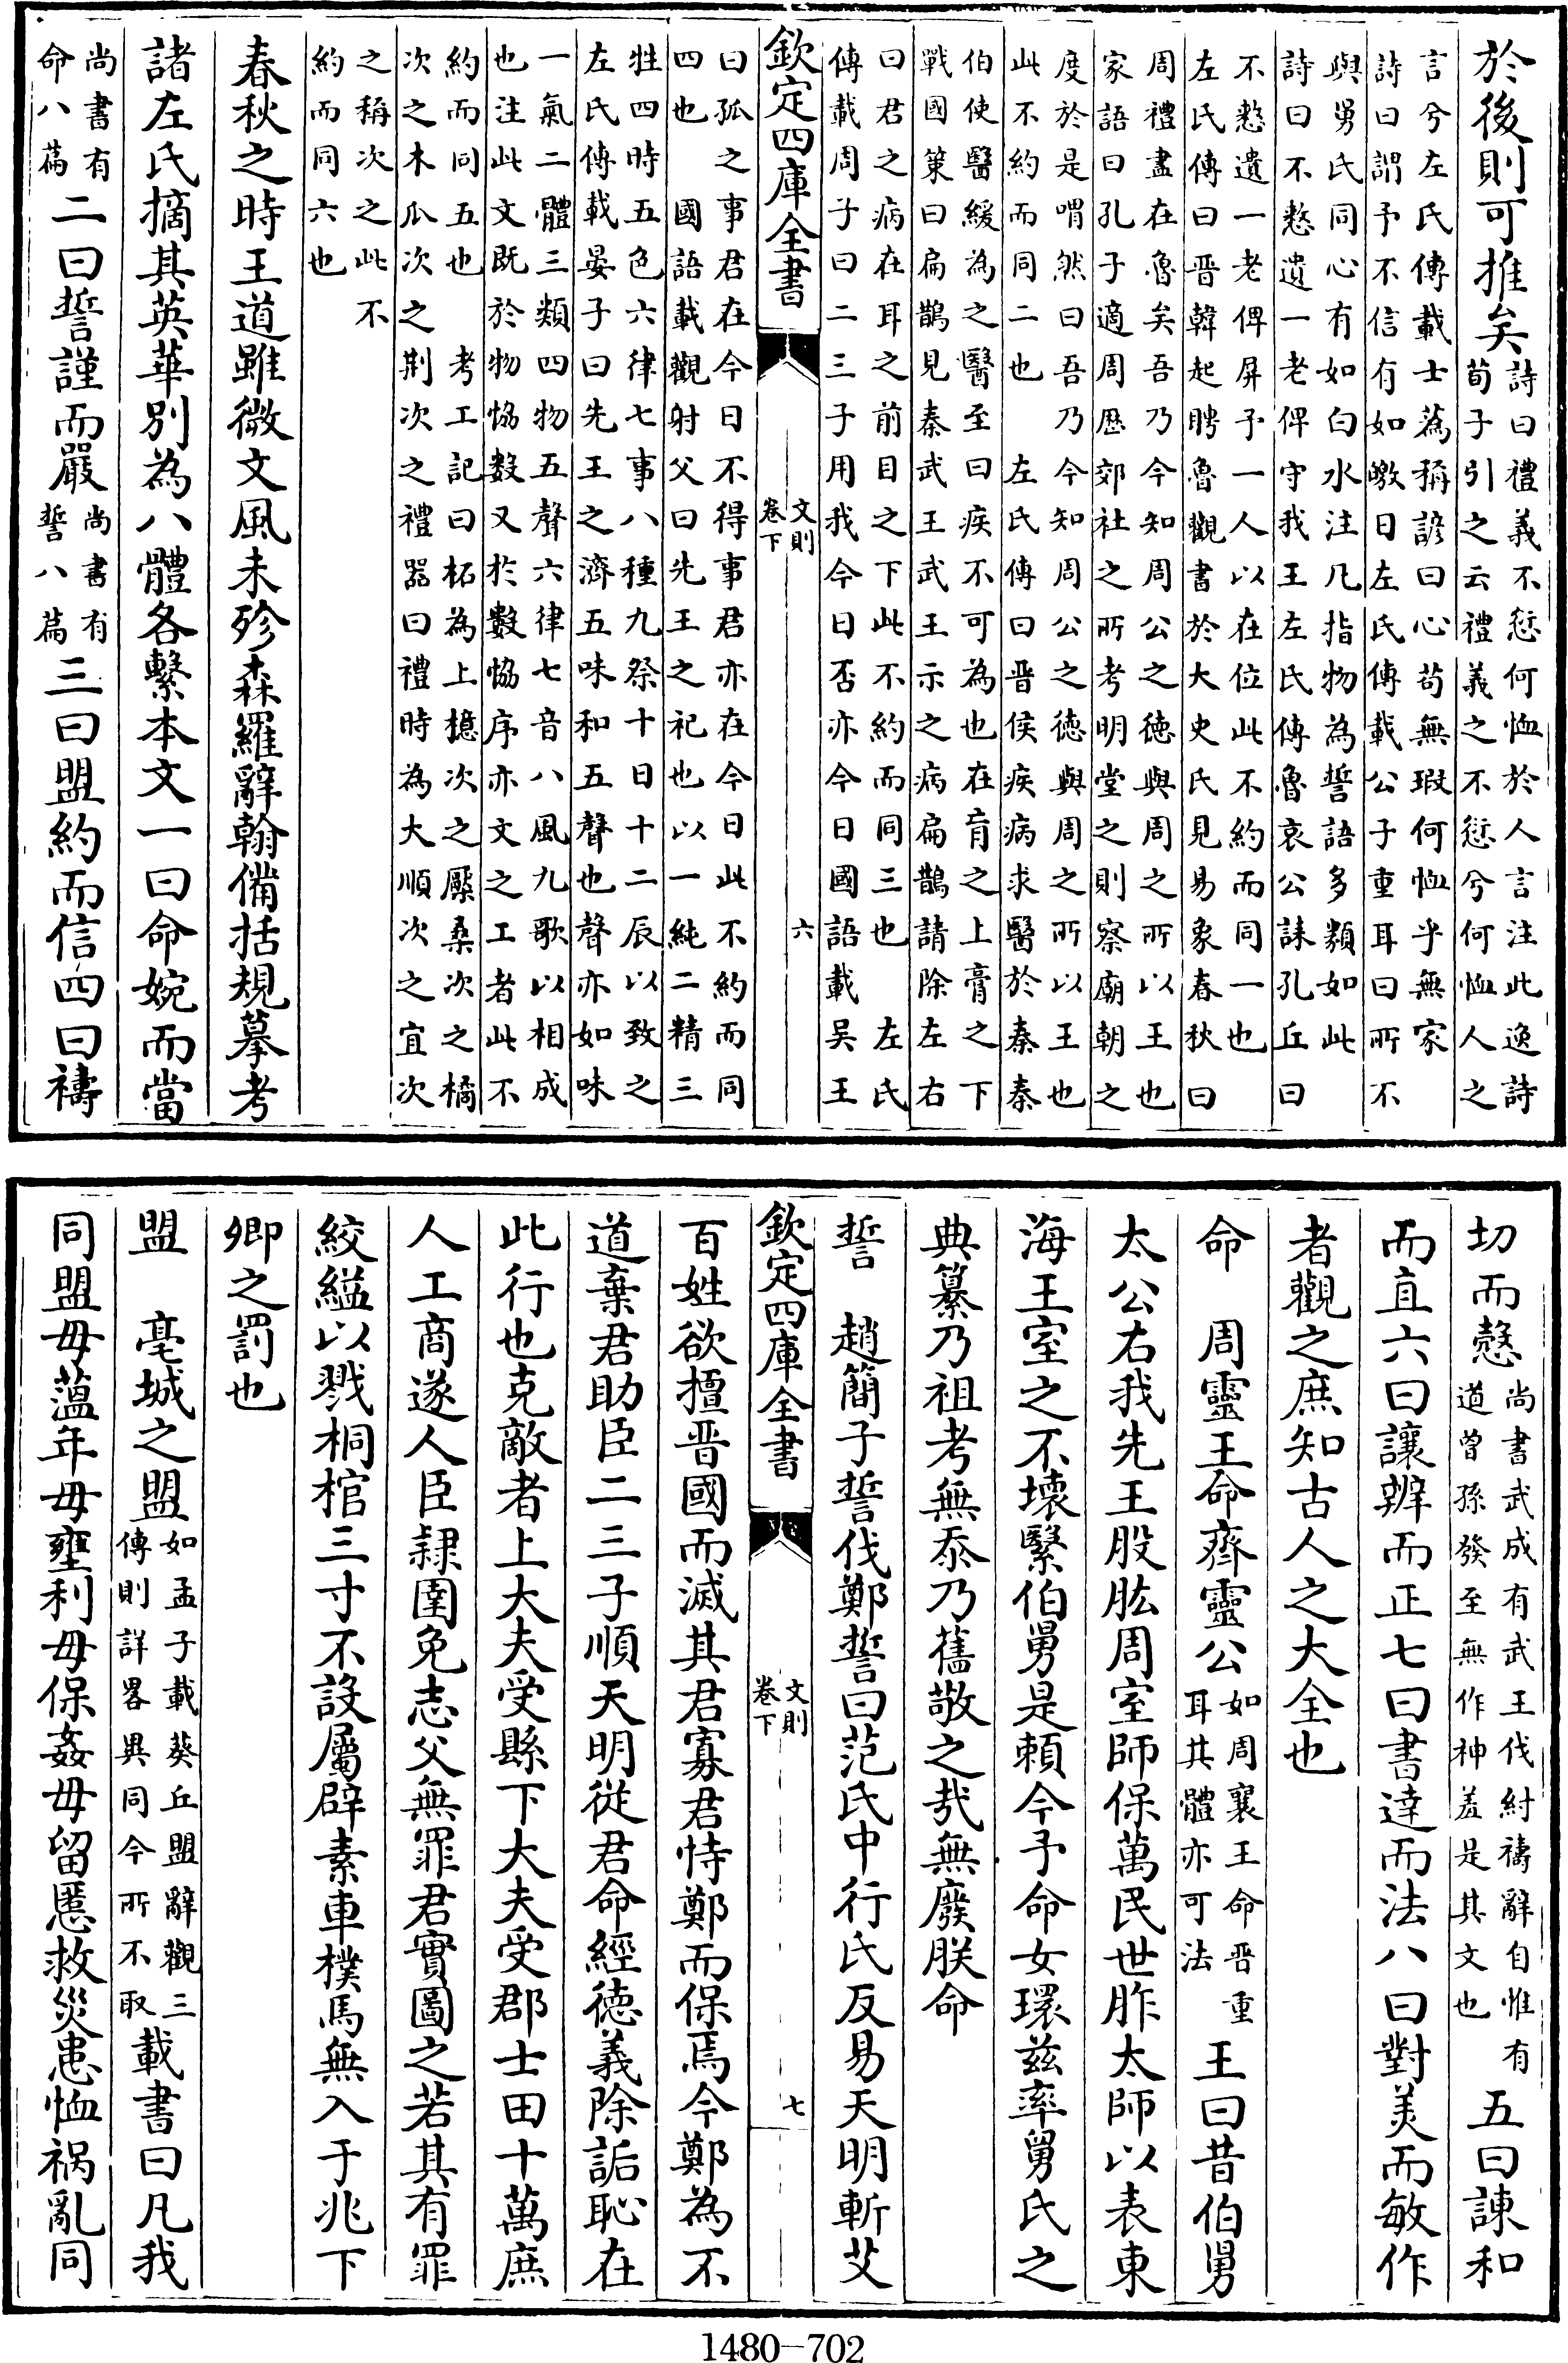 於後則可推矣
詩曰禮義不愆何恤於人言注此逸詩
荀子引之云禮義之不愆兮何恤人之
言兮左氏傳載士蔿稱諺曰心苟無瑕何恤乎無家
詩曰謂予不信有如皦日左氏傳載公子重耳曰所不
與舅氏同心有如白水注凡指物為誓語多類如此
詩曰不憖遺一老俾守我王左氏傳魯哀公誄孔丘曰
不憖遺一老俾屏予一人以在位此不約而同一也
左氏傳曰晋韓起聘魯觀書於大史氏見易象春秋曰
周禮盡在魯矣吾乃今知周公之徳與周之所以王也
家語曰孔子適周歴郊社之所考明堂之則察廟朝之
度於是喟然曰吾乃今知周公之徳與周之所以王也
此不約而同二也 左氏傳曰晋侯疾病求醫於秦秦
伯使醫緩為之醫至曰疾不可為也在肓之上膏之下
戰國策曰扁鵲見秦武王武王示之病扁鵲請除左右
曰君之病在耳之前目之下此不約而同三也 左氏
傳載周子曰二三子用我今日否亦今日國語載吴王
欽定四庫全書
文則
卷下
六
曰孤之事君在今日不得事君亦在今日此不約而同
四也 國語載觀射父曰先王之祀也以一純二精三
牲四時五色六律七事八種九祭十日十二辰以致之
左氏傳載晏子曰先王之濟五味和五聲也聲亦如味
一氣二體三類四物五聲六律七音八風九歌以相成
也注此文既於物協數又於數協序亦文之工者此不
約而同五也 考工記曰柘為上檍次之檿桑次之橘
次之木瓜次之荆次之禮器曰禮時為大順次之宜次
之稱次之此不
約而同六也
春秋之時王道雖微文風未殄森羅辭翰備括規摹考
諸左氏摘其英華別為八體各繫本文一曰命婉而當
尚書有
命八篇
二曰誓謹而嚴
尚書有
誓八篇
三曰盟約而信四曰禱
切而慤
尚書武成有武王伐紂禱辭自惟有
道曽孫發至無作神羞是其文也
五曰諫和
而直六曰讓辨而正七曰書達而法八曰對美而敏作
者觀之庶知古人之大全也
命 周靈王命齊靈公
如周襄王命晋重
耳其體亦可法
王曰昔伯舅
太公右我先王股肱周室師保萬民世胙太師以表東
海王室之不壊繄伯舅是頼今予命女環兹率舅氏之
典纂乃祖考無忝乃舊敬之哉無廢朕命
誓 趙簡子誓伐鄭誓曰范氏中行氏反易天明斬艾
欽定四庫全書
文則
卷下
七
百姓欲擅晋國而滅其君寡君恃鄭而保焉今鄭為不
道棄君助臣二三子順天明從君命經徳義除詬恥在
此行也克敵者上大夫受縣下大夫受郡士田十萬庶
人工商遂人臣隸圉免志父無罪君實圖之若其有罪
絞縊以戮桐棺三寸不設屬辟素車樸馬無入于兆下
卿之罰也
盟 亳城之盟
如孟子載葵丘盟辭觀三
傳則詳畧異同今所不取
載書曰凡我
同盟毋藴年毋壅利毋保姦毋留慝救災患恤禍亂同
1480-702